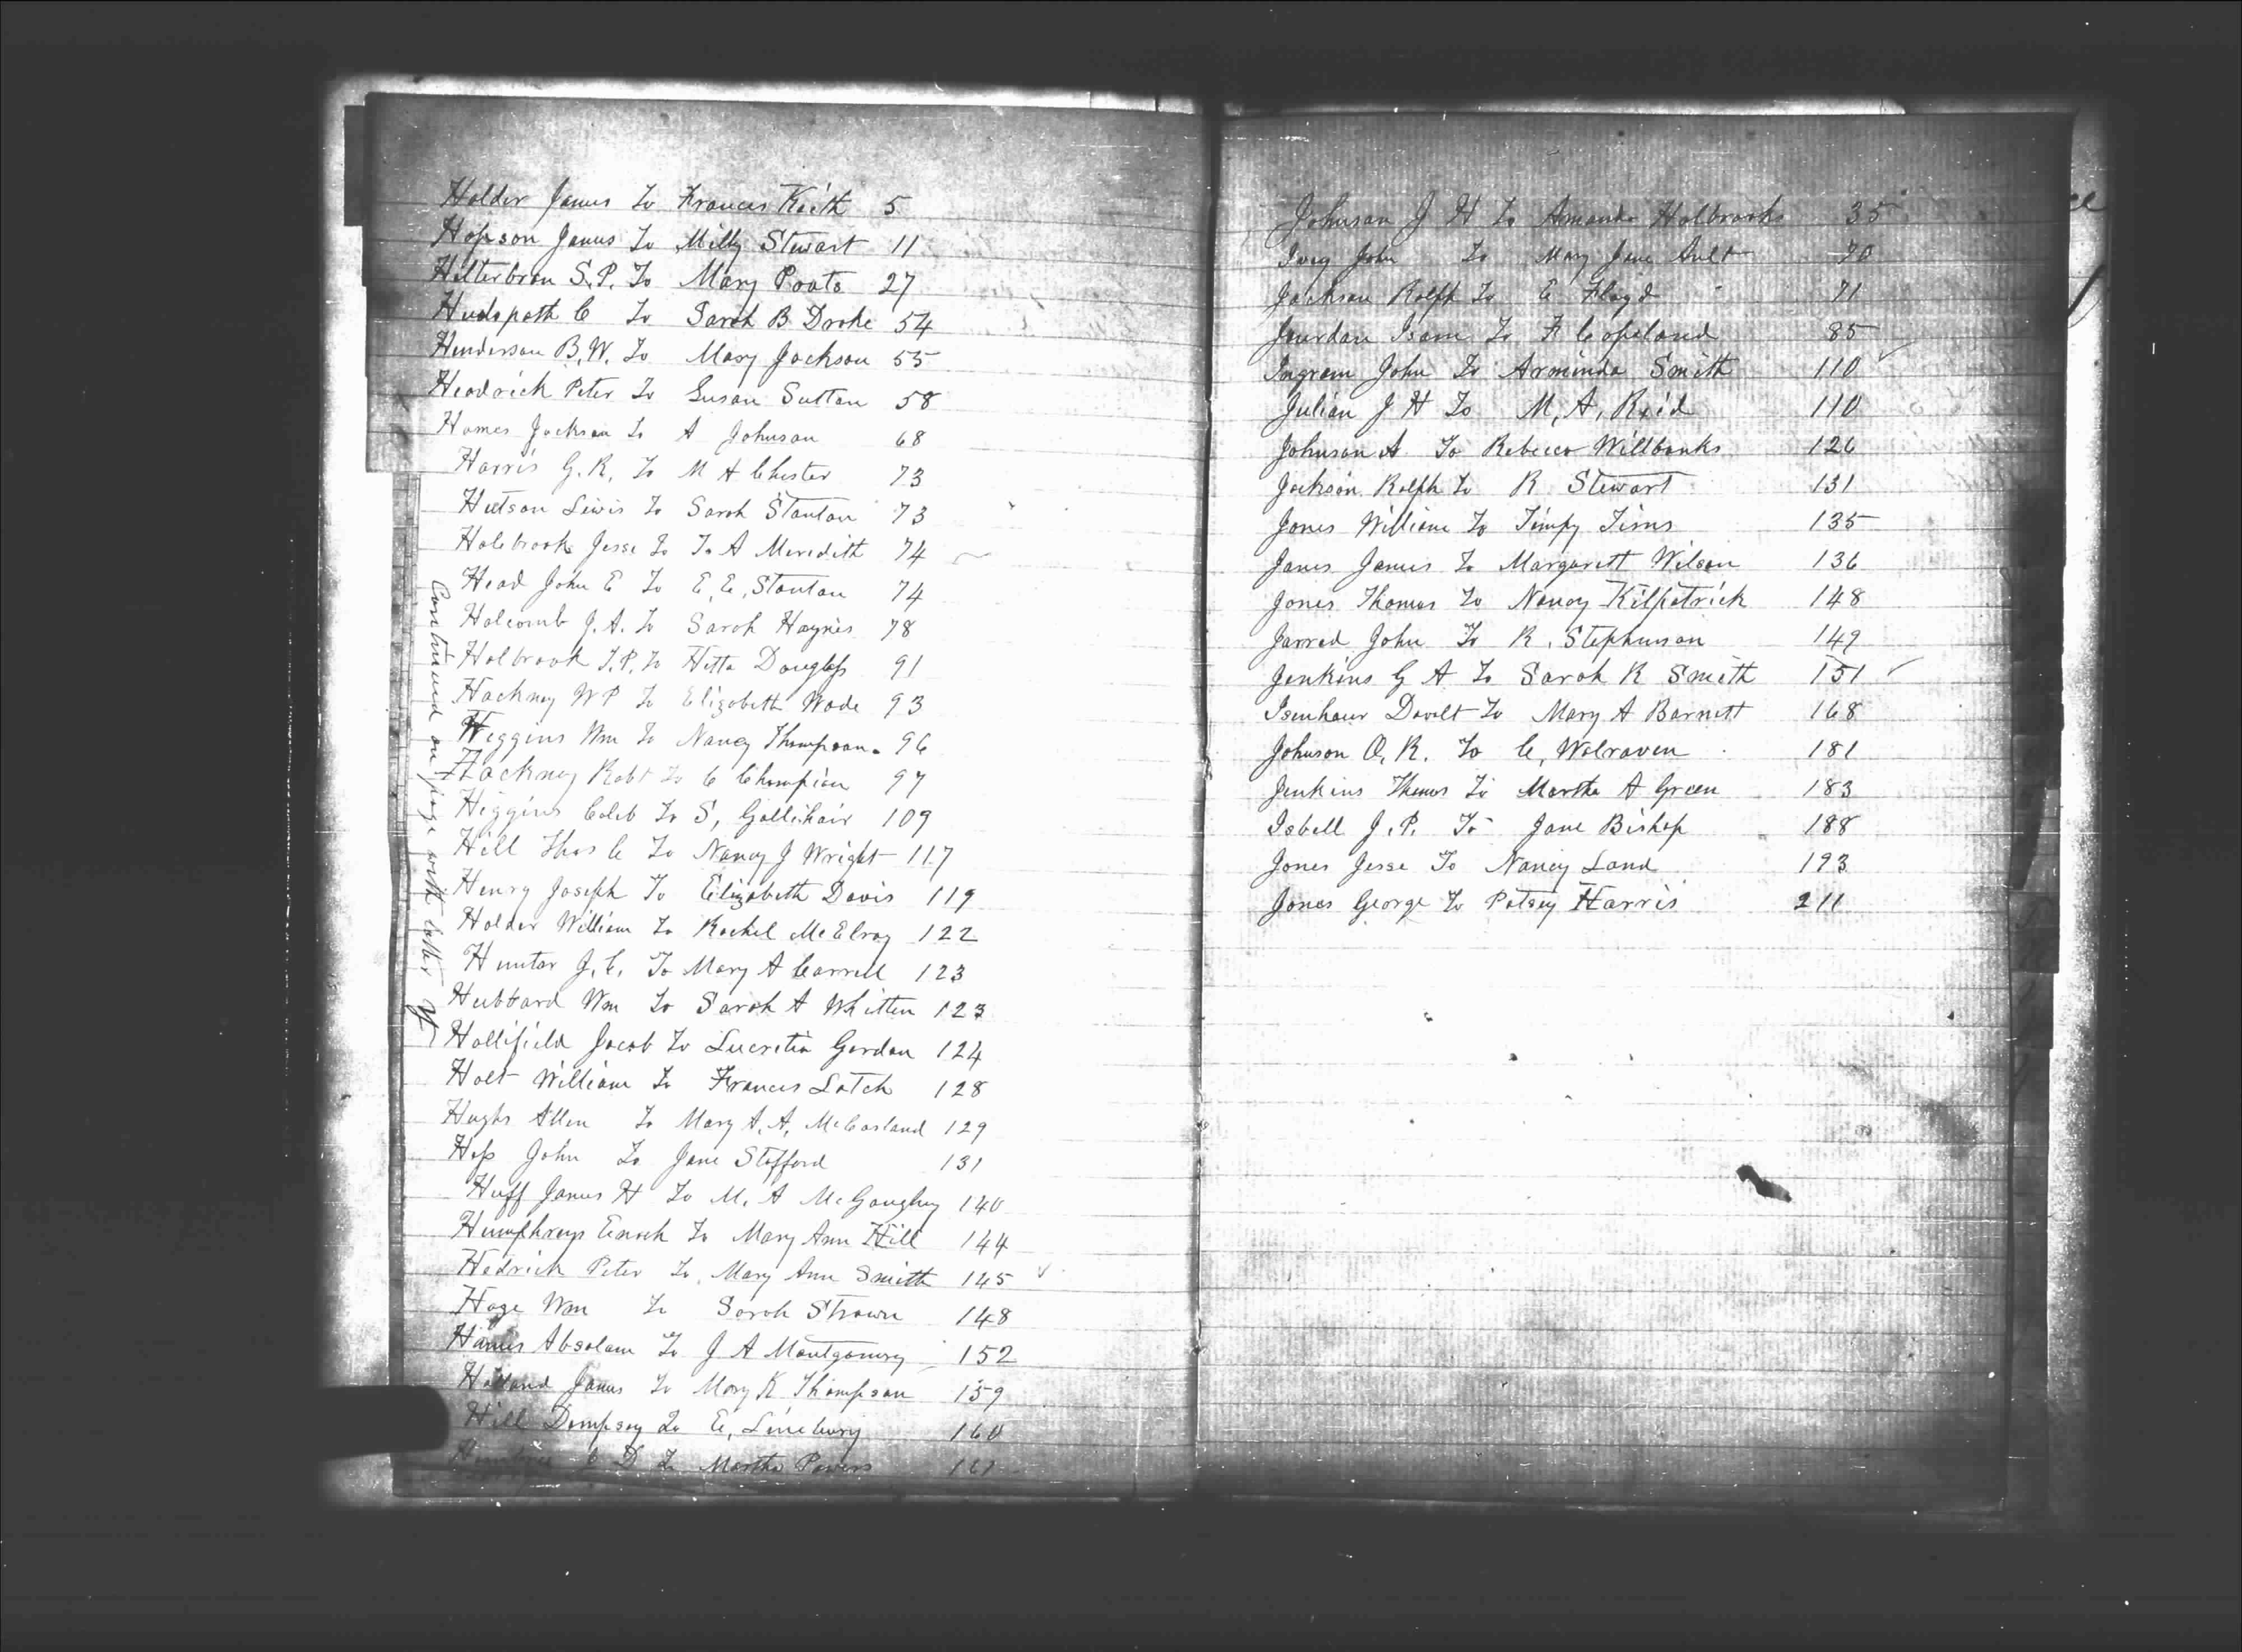 Holder James To Frances Keith 5
Hopson James To Milly Stewart 11
Hilterbran S.P. To Mary Poats 27
Hudspath C To Sarah B Droke 54
Henderson B.W. To Mary Jackson 55
Headrick Peter To Susan Sutton 58
Hames Jackson To A Johnson 68
Harris G.R. To M A Chester 73
Hutson Lewis To Sarah Stanton 73
Holebrooks Jesse To T. A Meredith 74
Head John E To E, E, Stanton 74
Holcomb J.A. To Sarah Haynes 78
Holbrook J.P. To Hetta Douglass 91
Hackney W P To Elizabeth Wade 93
Higgins Wm To Nancy Thompson 96
Hackney Robt To C Champion 97
Higgins Caleb To S, Gallihair 109
Hill Thos C To Nancy J Wright 117
Henry Joseph To Elizabeth Davis 119
Holder William To Rachel McElroy 122
Hunter J.C. To Mary A Carrell 123
Hubbard Wm To Sarah A Whitten 123
Hollifield Jacob To Lucretia Gordon 124
Holt William To Frances Latch 128
Hughs Allen To Mary A. A. McCasland 129
Hess John To Jane Stafford 131
Huff James H To M. A McGaughey 140
Humphreys Enoch To Mary Ann Hill 144
Hedrick Peter To Mary Ann Smith 145
Hage Wm To Sarah Strawn 148
Hames Absolam To J A Montgomery 152
Holland James To Mary K Thompson 159
Hill Dempsey To E, Lineburg 160
J D To Martha Powers 161
Continued on page with letter Y
Johnson J H To Amanda Holbrooks 35
Ivey John To Mary Jane Ault 70
Jackson Rolph To E Floyd 71
Jourdan Isom To F Copeland 85
Ingram John To Arminda Smith 110
Julian J H To M, A, Reid 110
Johnson A To Rebecca Willbanks 126
Jackson Rolph To R Stewart 131
Jones William To Timpy Tims 135
Jones James To Margarett Wilson 136
Jones Thomas To Nancy Kilpatrick 148
Jarred John To R. Stephenson 149
Jenkins G A To Sarah R Smith 151
Isenhour Davolt To Mary A Barnett 168
Johnson O, R. To C, Walraven 181
Jenkins Thomas To Martha A Green 183
Isbell J.P. To Jane Bishop 188
Jones Jesse To Nancy Land 193
Jones George To Patsey Harris 211